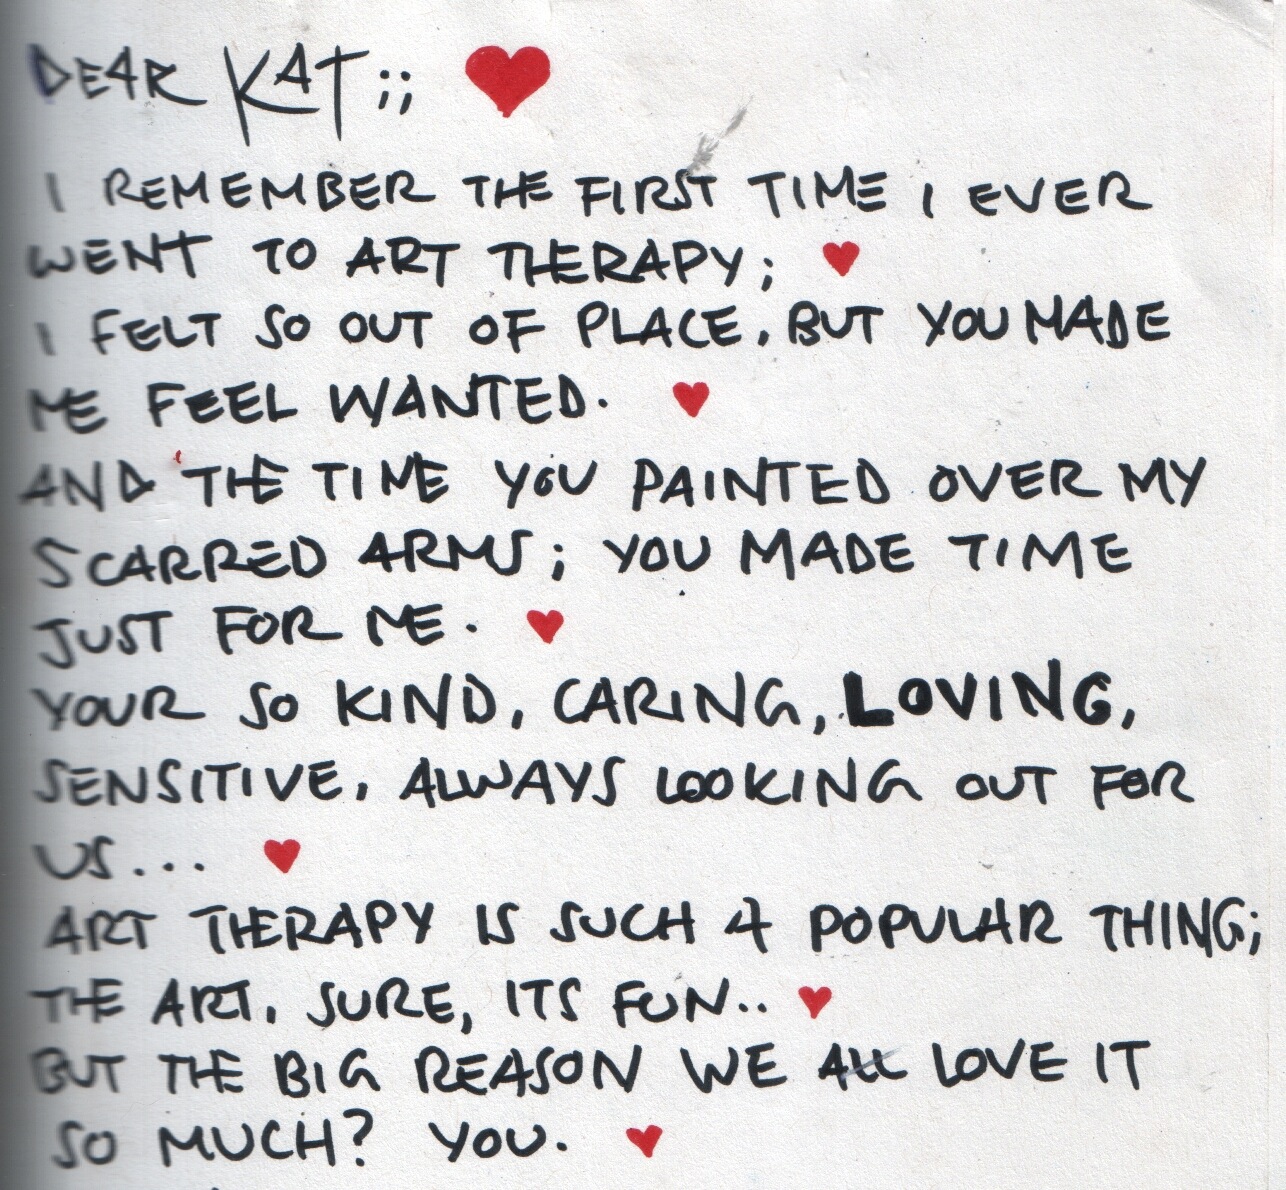 DEAR KAT ;; ♥
I REMEMBER THE FIRST TIME I EVER
WENT TO ART THERAPY; ♥
I FELT SO OUT OF PLACE, BUT YOU MADE
ME FEEL WANTED. ♥
AND THE TIME YOU PAINTED OVER MY
SCARRED ARMS; YOU MADE TIME
JUST FOR ME. ♥
YOUR SO KIND, CARING, LOVING,
SENSITIVE, ALWAYS LOOKING OUT FOR
US... ♥
ART THERAPY IS SUCH A POPULAR THING;
THE ART, SURE, ITS FUN.. ♥
BUT THE BIG REASON WE ALL LOVE IT
SO MUCH? YOU. ♥